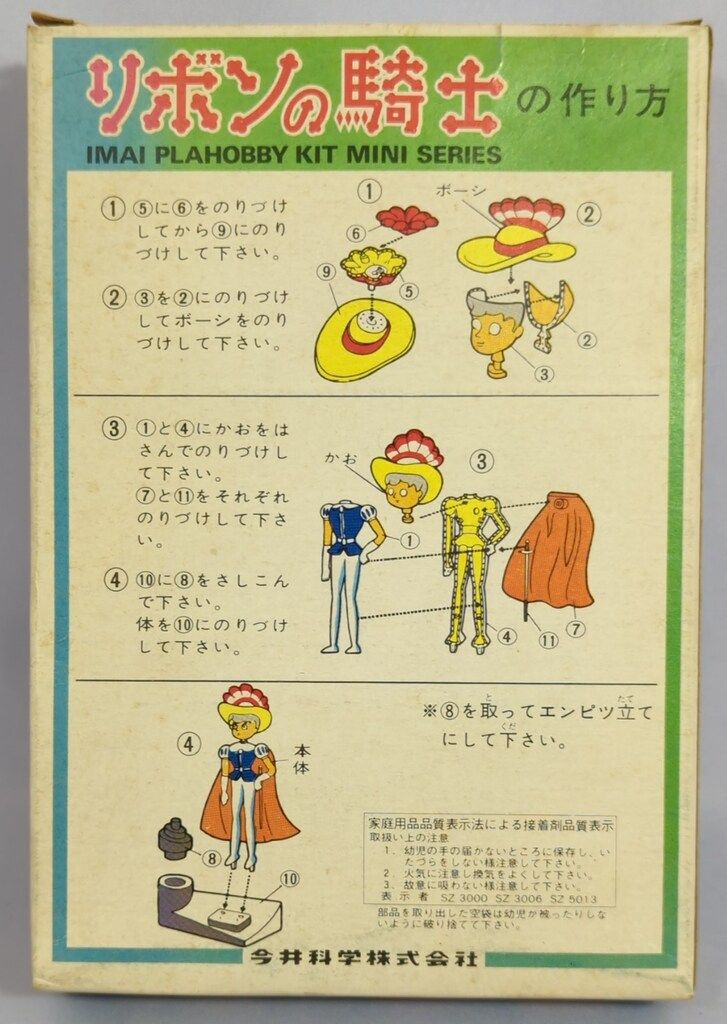 リボンの騎士の作り方
IMAI PLAHOBBY KIT MINI SERIES
① ⑤に⑥をのりづけ
してから⑨にのり
づけして下さい。
② ③を②にのりづけ
してボーシをのり
づけして下さい。
①
⑥
⑨
⑤
ボーシ
②
②
③
③ ①と④にかおをは
さんでのりづけし
て下さい。
⑦と⑪をそれぞれ
のりづけして下さ
い。
④ ⑩に⑧をさしこん
で下さい。
体を⑩にのりづけ
して下さい。
かお
③
①
④
⑪
⑦
④
本体
⑧
⑩
※⑧を取ってエンピツ立て
にして下さい。
家庭用品品質表示法による接着剤品質表示
取扱い上の注意
1. 幼児の手の届かないところに保存し、い
たづらをしない様注意して下さい。
2. 火気に注意し換気をよくして下さい。
3. 故意に吸わない様注意して下さい。
表示者 SZ 3000 SZ 3006 SZ 5013
部品を取り出した空袋は幼児が被ったりしな
いように破り捨てて下さい。
今井科学株式会社